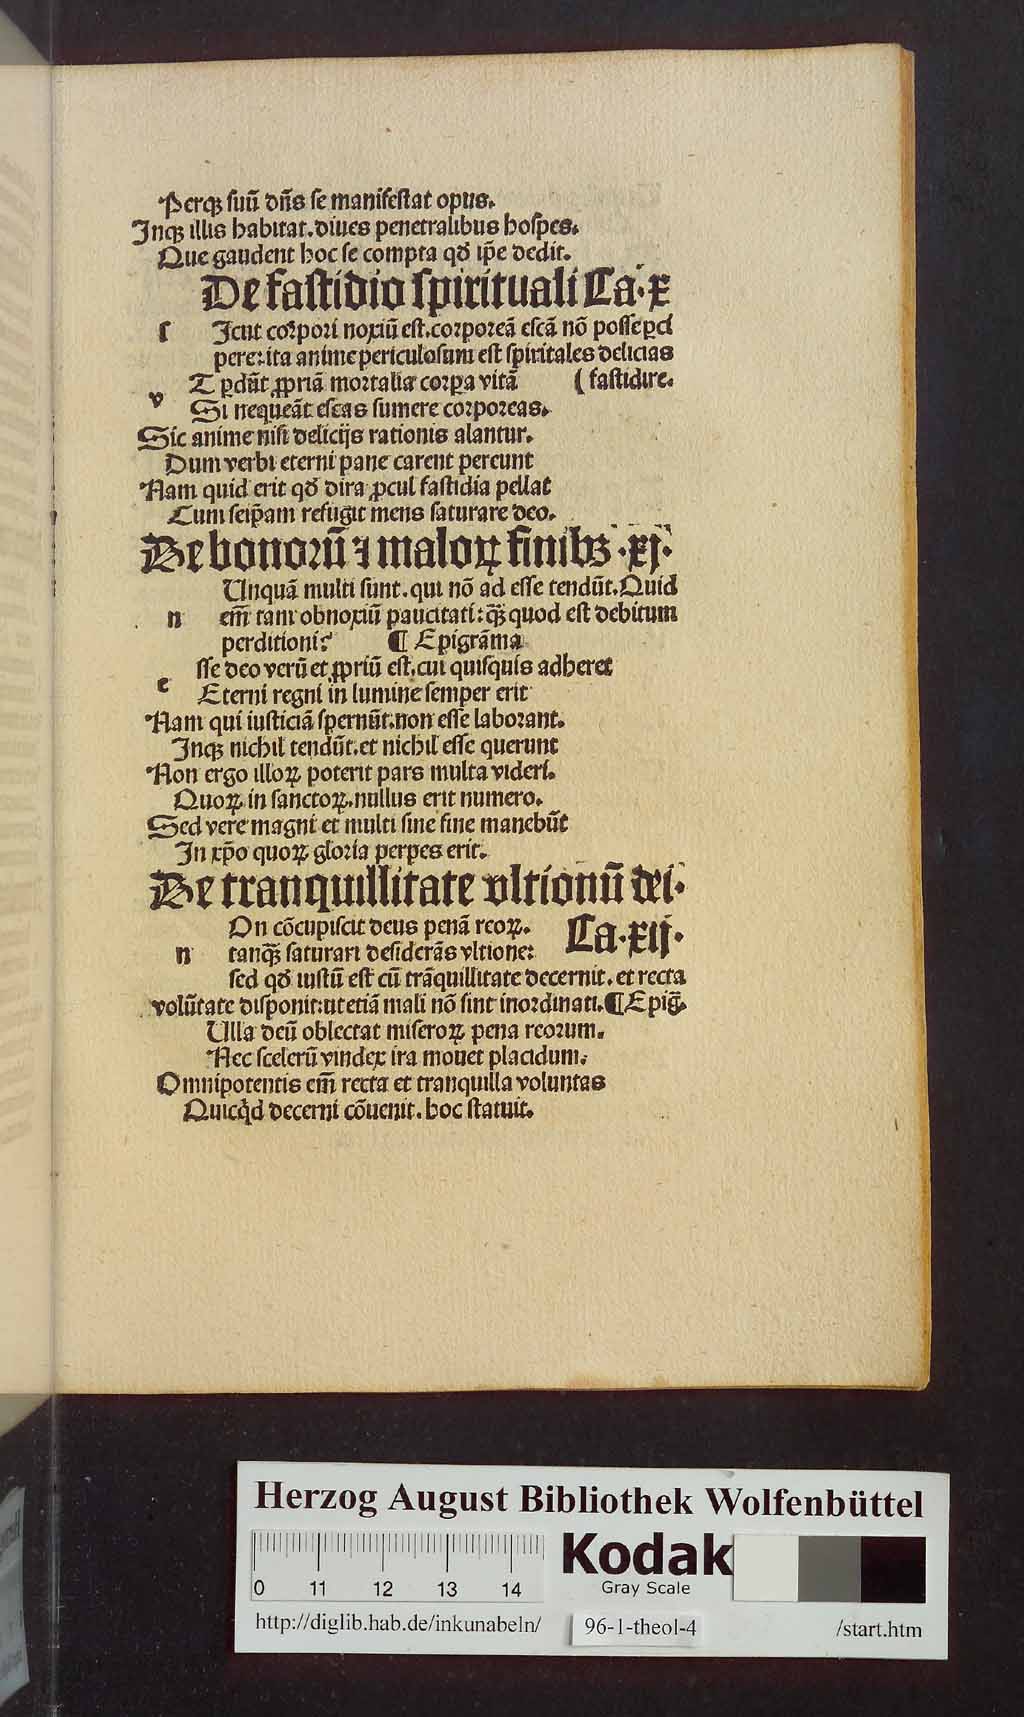 Perqꝫ suū dn̄s se manifestat opus.
Inqꝫ illis habitat. diues penetralibus hospes.
Que gaudent hoc se compta qd̛ ip̄e dedit.
De fastidio spirituali Ca. x
s Icut corpori noxiū est. corporeā escā nō posse ꝑci
pere: ita anime periculosum est spiritales delicias
v T ꝑdūt ꝓpriā mortalia corꝑa vitā ( fastidire.
Si nequeāt escas sumere corporeas.
Sic anime nisi delicijs rationis alantur.
Dum verbi eterni pane carent pereunt
Nam quid erit qd̛ dira ꝓcul fastidia pellat
Cum seip̄am refugit mens saturare deo.
De bonorū ⁊ maloꝝ finibꝫ .xj.
n Unquā multi sunt. qui nō ad esse tendūt. Quid
em̄ tam obnoxiū paucitati: qꝫ̄ quod est debitum
perditioni? ¶ Epigrāma
e sse deo verū et ꝓpriū est. cui quisquis adheret
Eterni regni in lumine semper erit
Nam qui iusticiā spernūt. non esse laborant.
Inqꝫ nichil tendūt. et nichil esse querunt
Non ergo illoꝝ poterit pars multa videri.
Quoꝝ in sanctoꝝ. nullus erit numero.
Sed vere magni et multi sine fine manebūt
In xp̄o quoꝝ gloria perpes erit.
De tranquillitate vltionū dei.
n On cōcupiscit deus penā reoꝝ. Ca. xij.
tanqꝫ̄ saturari desiderās vltione:
sed qd̛ iustū est cū trāquillitate decernit. et recta
volūtate disponit: ut etiā mali nō sint inordinati. ¶ Epig̅.
Ulla deū oblectat miseroꝝ pena reorum.
Nec scelerū vindex ira mouet placidum.
Omnipotentis em̄ recta et tranquilla voluntas
Quicqͥd decerni cōuenit. hoc statuit.
Herzog August Bibliothek Wolfenbüttel
0 11 12 13 14
Kodak
Gray Scale
http://diglib.hab.de/inkunabeln/ 96-1-theol-4 /start.htm